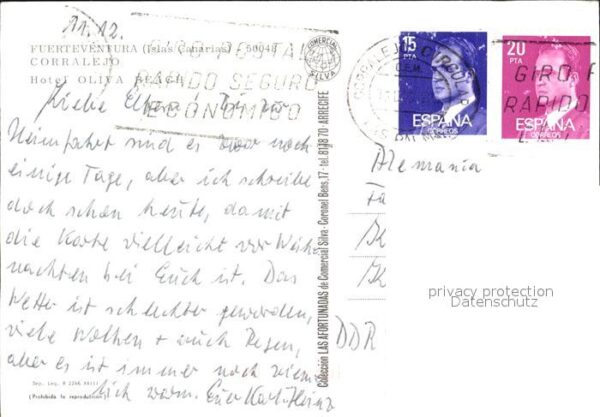 11.12.
FUERTEVENTURA (Islas Canarias) - 50048
CORRALEJO
Hotel OLIVA BEACH
GIRO POSTAL
RAPIDO SEGURO
ECONOMICO
Liebe Eltern! Bis zur
Heimfahrt sind es zwar noch
einige Tage, aber ich schreibe
doch schon heute, damit
die Karte vielleicht vor Weih-
nachten bei Euch ist. Das
Wetter ist schlechter geworden,
viele Wolken + auch Regen,
aber es ist immer noch ziem-
lich warm. Euer Karl-Heinz
Dep. Leg. B 2266 XXIII
(Prohibida la reproducción)
COMERCIAL
SILVA
Colección LAS AFORTUNADAS de Comercial Silva - Coronel Bens, 17 - tel. 81 38 70 - ARRECIFE
15
PTA
ESPAÑA
CORREOS
20
PTA
ESPAÑA
CORREOS
GIRO P
RAPIDO
Alemania
Fa
DDR
privacy protection
Datenschutz